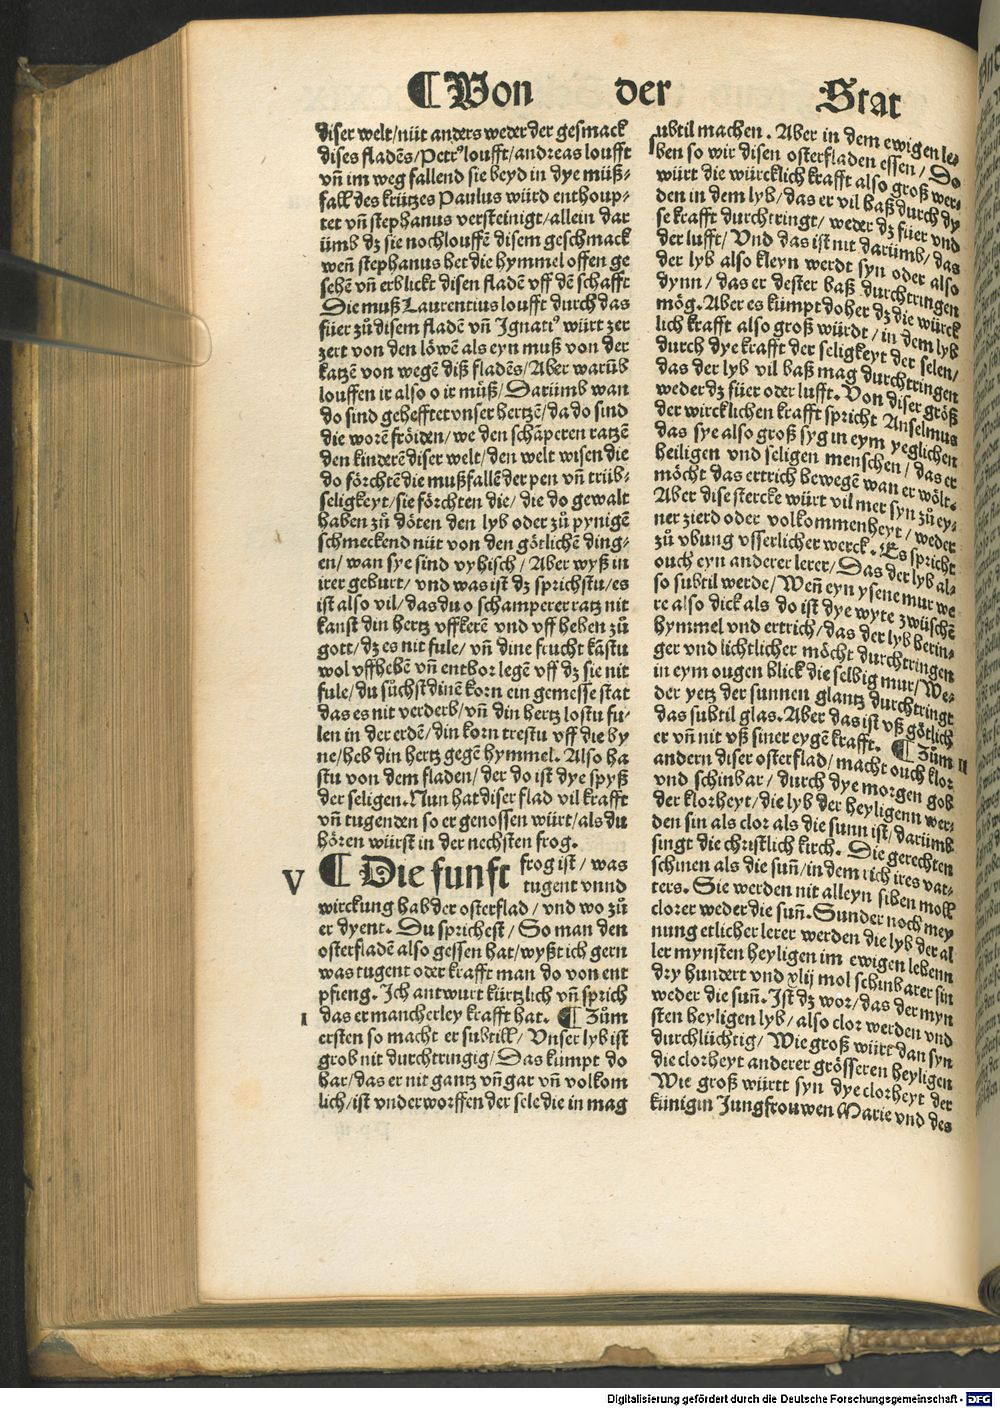 ¶ Von der Stat
diser welt/nüt anders weder der gesmack
dises fladēs/Petrꝰloufft/andreas loufft
vn̄ im weg fallend sie beyd in dye müß⸗
fall des krützes Paulus würd enthoup⸗
tet vn̄ stephanus versteinigt/allein dar
ümb dz sie noch louffē disem geschmack
wen̄ stephanus het die hymmel offen ge
sehē vn̄ erblickt disen fladē vff dē schafft
Sie muß Laurentius loufft durch das
füer zů disem fladē vn̄ Ignatiꝰ würt zer
zert von den löwē als eyn muß von der
katzē von wegē diß fladēs/Aber warüb
louffen ir also o ir müß/Darümb wan
do sind gehefftet vnser hertzē/da do sind
die worē fröiden/we den schāperen ratzē
den kinderē diser welt/den welt wisen die
do förchtē die mußfallē der pen vn̄ trüb⸗
seligkeyt/sie förchten die/die do gewalt
haben zů döten den lyb oder zů pynigē
schmeckend nüt von den götlichē ding⸗
en/wan sye sind vyhisch/Aber wyß in
irer geburt/vnd was ist dz sprichstu/es
ist also vil/das du o schamperer ratz nit
kanst din hertz vffkerē vnd vff heben zů
gott/dz es nit fule/vn̄ dine frucht kāstu
wol vffhebē vn̄ entbor legē vff dz sie nit
fule/du süchst dinē korn ein gemesse stat
das es nit verderb/vn̄ din hertz lostu fu⸗
len in der erdē/din korn trestu vff die by
ne/heb din hertz gegē hymmel. Also ha
stu von dem fladen/der do ist dye spyß
der seligen. Nun hat diser flad vil krafft
vn̄ tugenden so er genossen würt/als du
hören würst in der nechsten frog.
V ¶ Die funft frog ist/was
tugent vnnd
wirckung hab der osterflad/vnd wo zů
er dyent. Du sprichest/So man den
osterfladē also gessen hat/wyßt ich gern
was tugent oder krafft man do von ent
pfieng. Ich antwurt kürtzlich vn̄ sprich
I das er mancherley krafft hat. ¶ Zům
ersten so macht er subtill/Vnser lyb ist
grob nit durchtringig/Das kumpt do
har/das er nit gantz vn̄ gar vn̄ volkom
lich/ist vnderworffen der sele die in mag
subtil machen. Aber in dem ewigen le⸗
ben so wir disen osterfladen essen/So
würt die würcklich krafft also groß wer⸗
den in dem lyb/das er vil baß durch dy
se krafft durchtringt/weder dz füer vnd
der lufft/Vnd das ist nit darümb/das
der lyb also kleyn werdt syn oder also
dynn/das er dester baß durchtringen
mög. Aber es kumpt doher dz die würck
lich krafft also groß würdt/in dem lyb
durch dye krafft der seligkeyt der selen/
das der lyb vil baß mag durchtringen
weder dz füer oder lufft. Von diser größ
der wircklichen krafft spricht Anselmus
das sye also groß syg in eym yeglichen
heiligen vnd seligen menschen/das er
möcht das ertrich bewegē wan er wölt.
Aber dise stercke würt vil mer syn zů ey⸗
ner zierd oder volkommenheyt/weder
zů vbung vsserlicher werck. Es spricht
ouch eyn anderer lerer/Das der lyb al⸗
so subtil werde/Wen̄ eyn ysene mur we
re also dick als do ist dye wyte zwüschē
hymmel vnd ertrich/das der lyb herin⸗
ger vnd lichtlicher möcht durchtringen
in eym ougen blick die selbig mur/We⸗
der yetz der sunnen glantz durchtringt
das subtil glas. Aber das ist vß götlich
er vn̄ nit vß siner eygē krafft. ¶ Zům II
andern diser osterflad/macht ouch klor
vnd schinbar/durch dye morgen gob
der klorheyt/die lyb der heyligenn wer⸗
den sin als clor als die sunn ist/darümb
singt die christlich kirch. Die gerechten
schinen als die sun̄/in dem rich ires vat⸗
ters. Sie werden nit alleyn siben moll
clorer weder die sun̄. Sunder noch mey
nung etlicher lerer werden die lyb der al
ler mynsten heyligen im ewigen lebenn
dry hundert vnd xliij mol schinbarer sin
weder die sun̄. Ist dz wor/das der myn
sten heyligen lyb/also clor werden vnd
durchlüchtig/Wie groß würt dan syn
die clorheyt anderer grösseren heyligen
Wie groß württ syn dye clorheyt der
künigin Jungfrouwen Marie vnd des
Digitalisierung gefördert durch die Deutsche Forschungsgemeinschaft - DFG